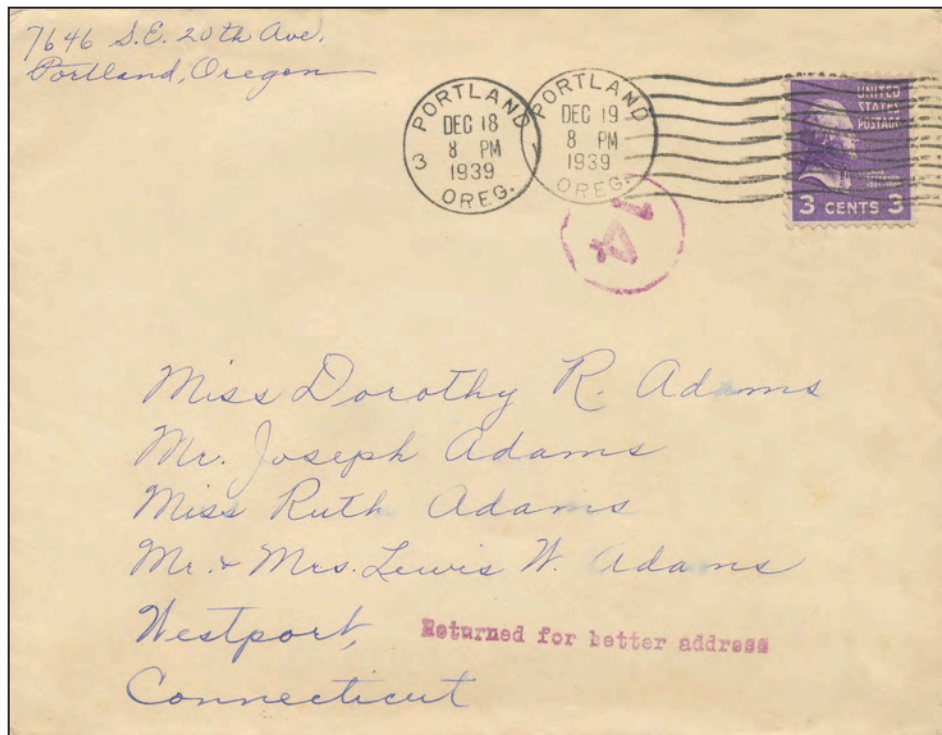 7646 S.E. 20th Ave.
Portland, Oregon
PORTLAND
DEC 18
8 PM
1939
3
OREG.
PORTLAND
DEC 19
8 PM
1939
1
OREG.
UNITED
STATES
POSTAGE
3 CENTS 3
14
Miss Dorothy R. Adams
Mr. Joseph Adams
Miss Ruth Adams
Mr. & Mrs. Lewis W. Adams
Westport,
Returned for better address
Connecticut